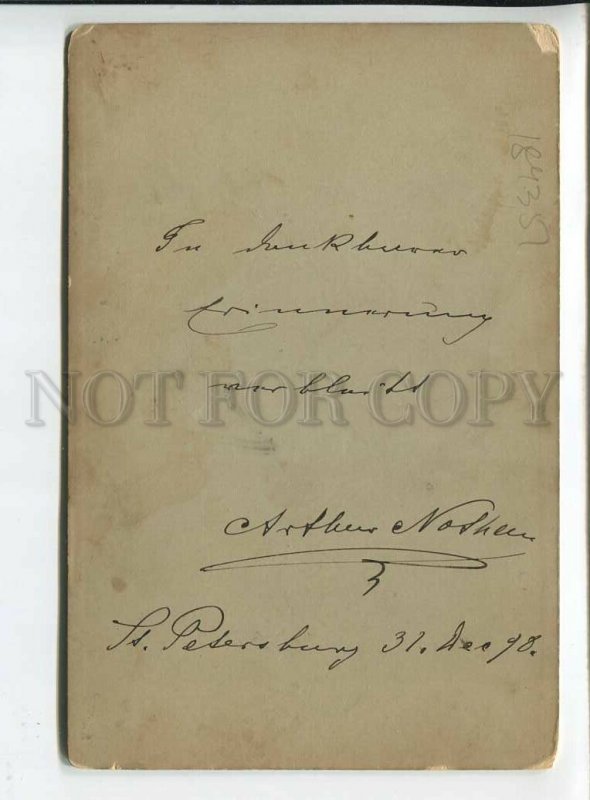 In dankbarer
Erinnerung
verbleibt
NOT FOR COPY
Arthur Nothen
St. Petersburg 31. Dec 98.
184357